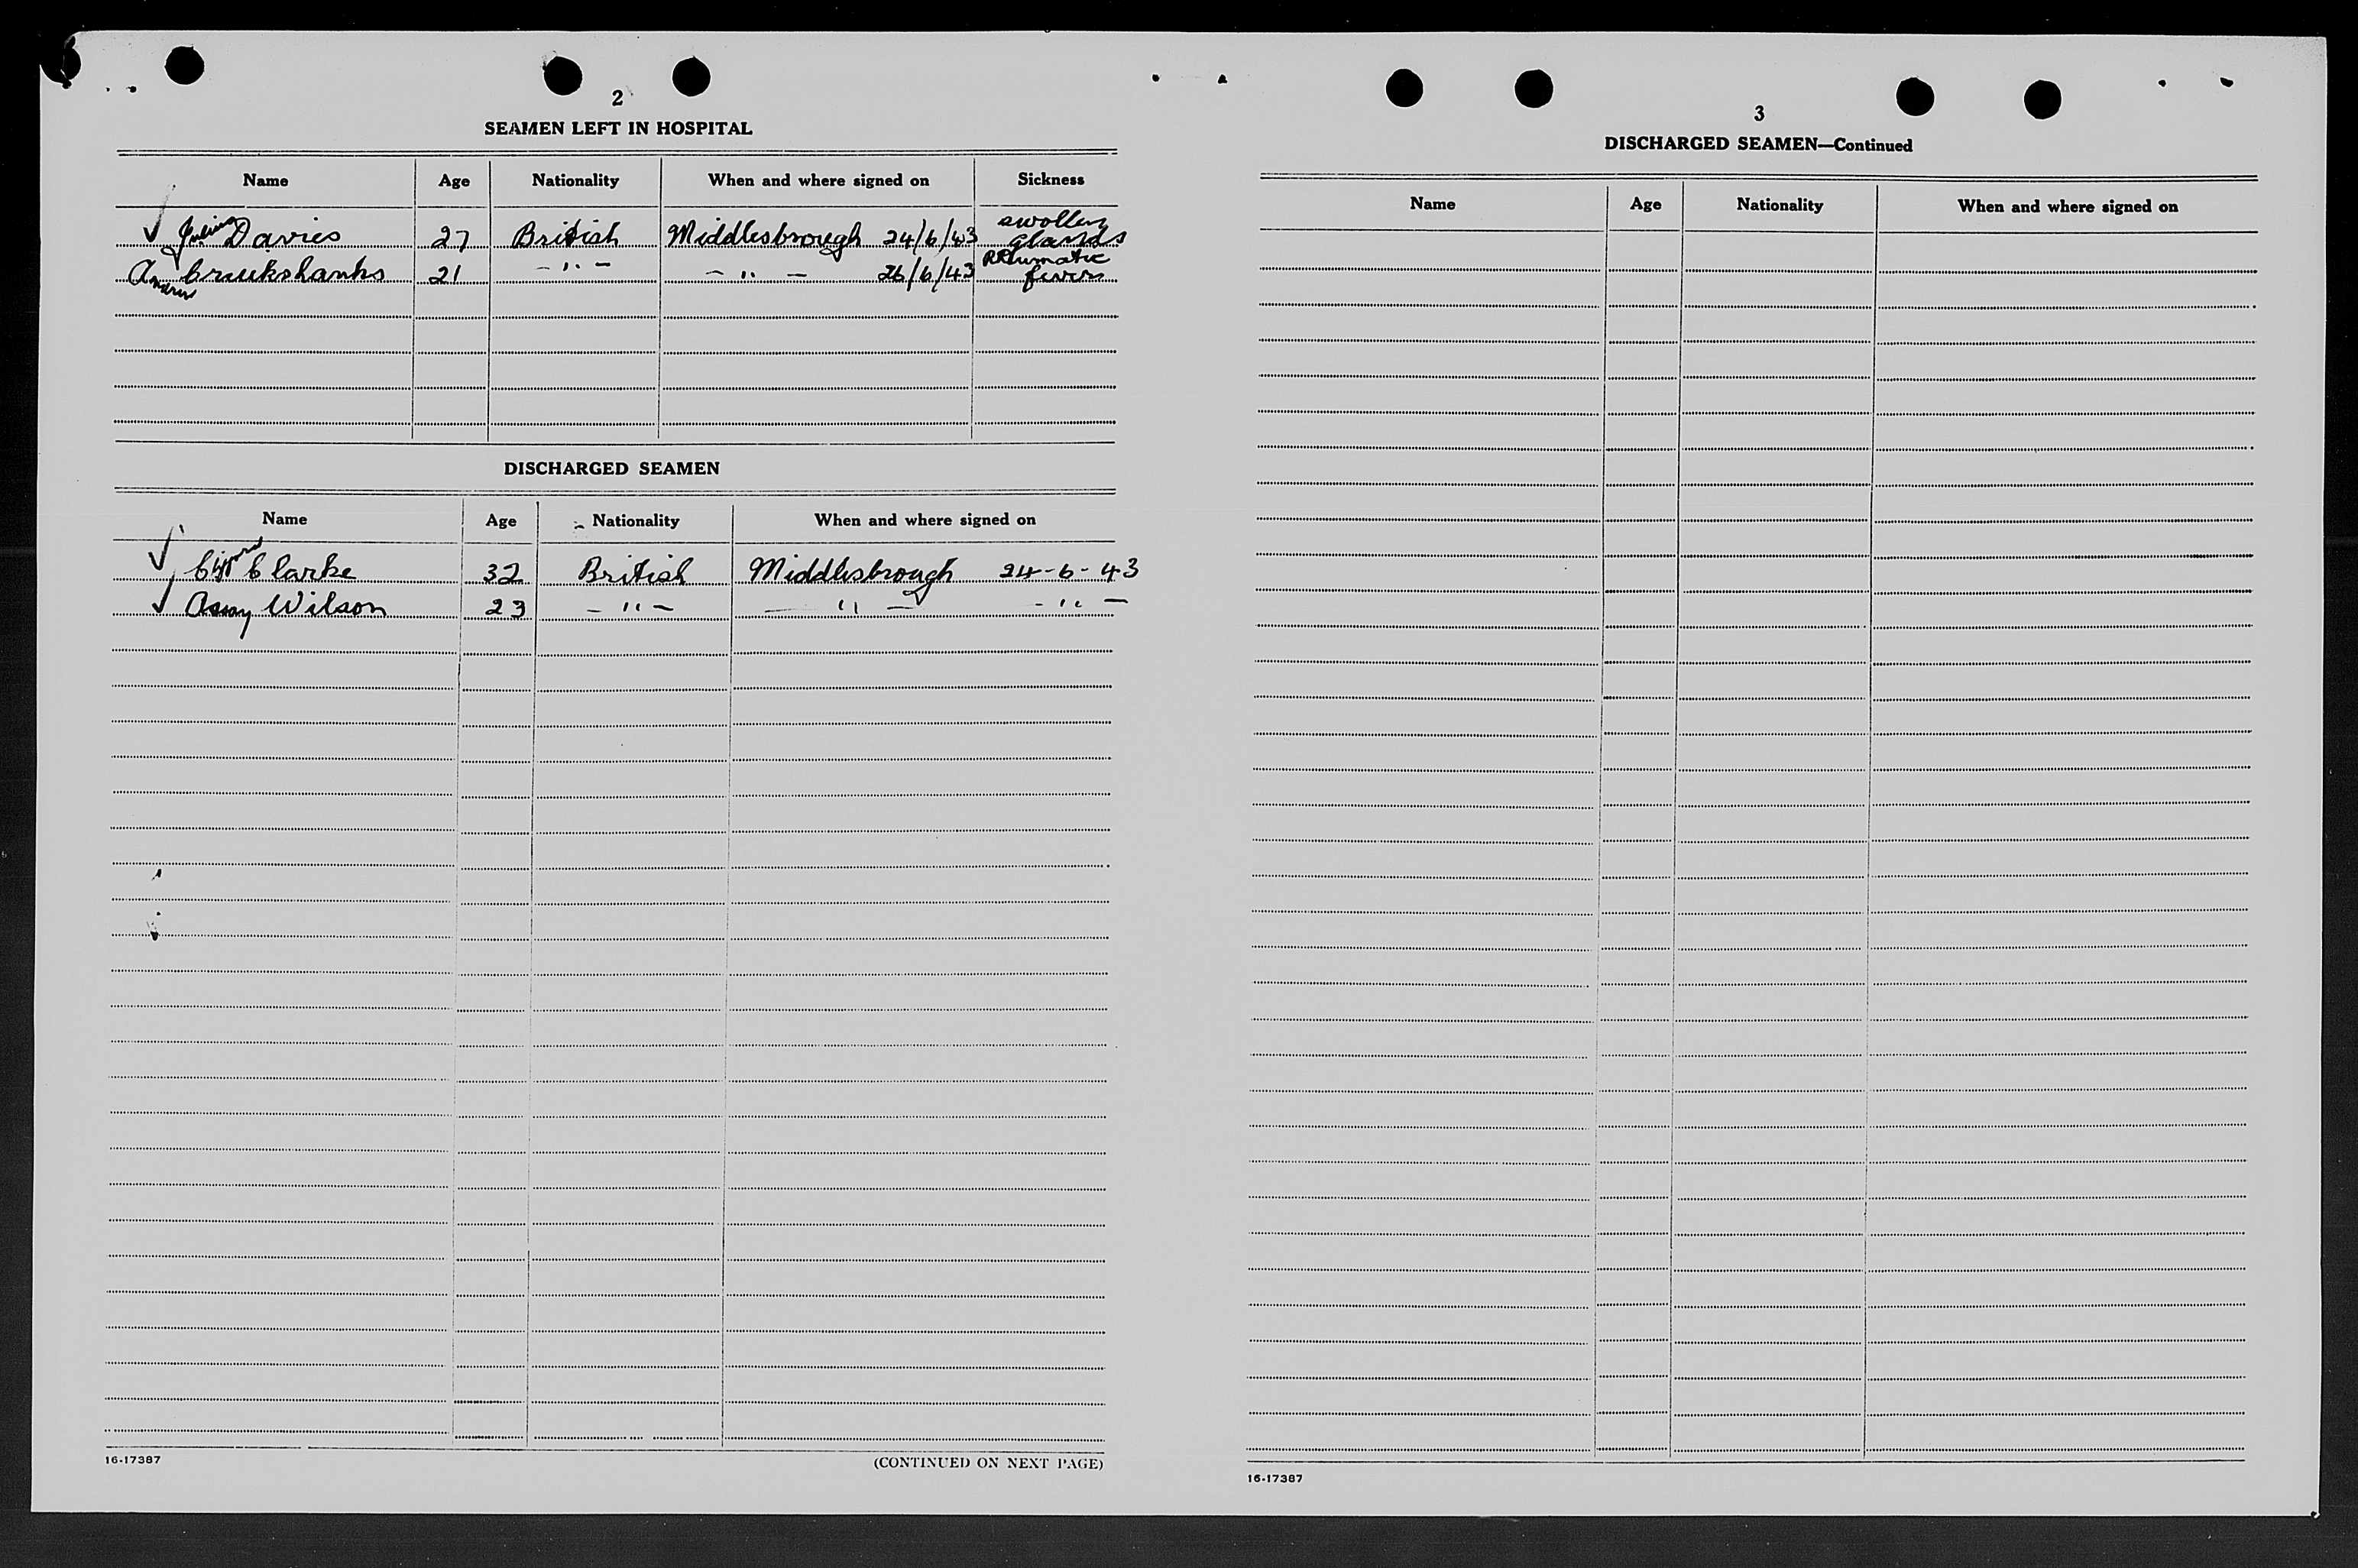 2
SEAMEN LEFT IN HOSPITAL
Name Age Nationality When and where signed on Sickness
Davies 27 British Middlesbrough 24/6/43 swollen glands
Andrew Cruikshanks 21 - " - - " - 26/6/43 Rheumatic fever
DISCHARGED SEAMEN
Name Age Nationality When and where signed on
Clarke 32 British Middlesbrough 24-6-43
Wilson 23 - " - - " - - " -
16-17387
(CONTINUED ON NEXT PAGE)
3
DISCHARGED SEAMEN—Continued
Name Age Nationality When and where signed on
16-17387